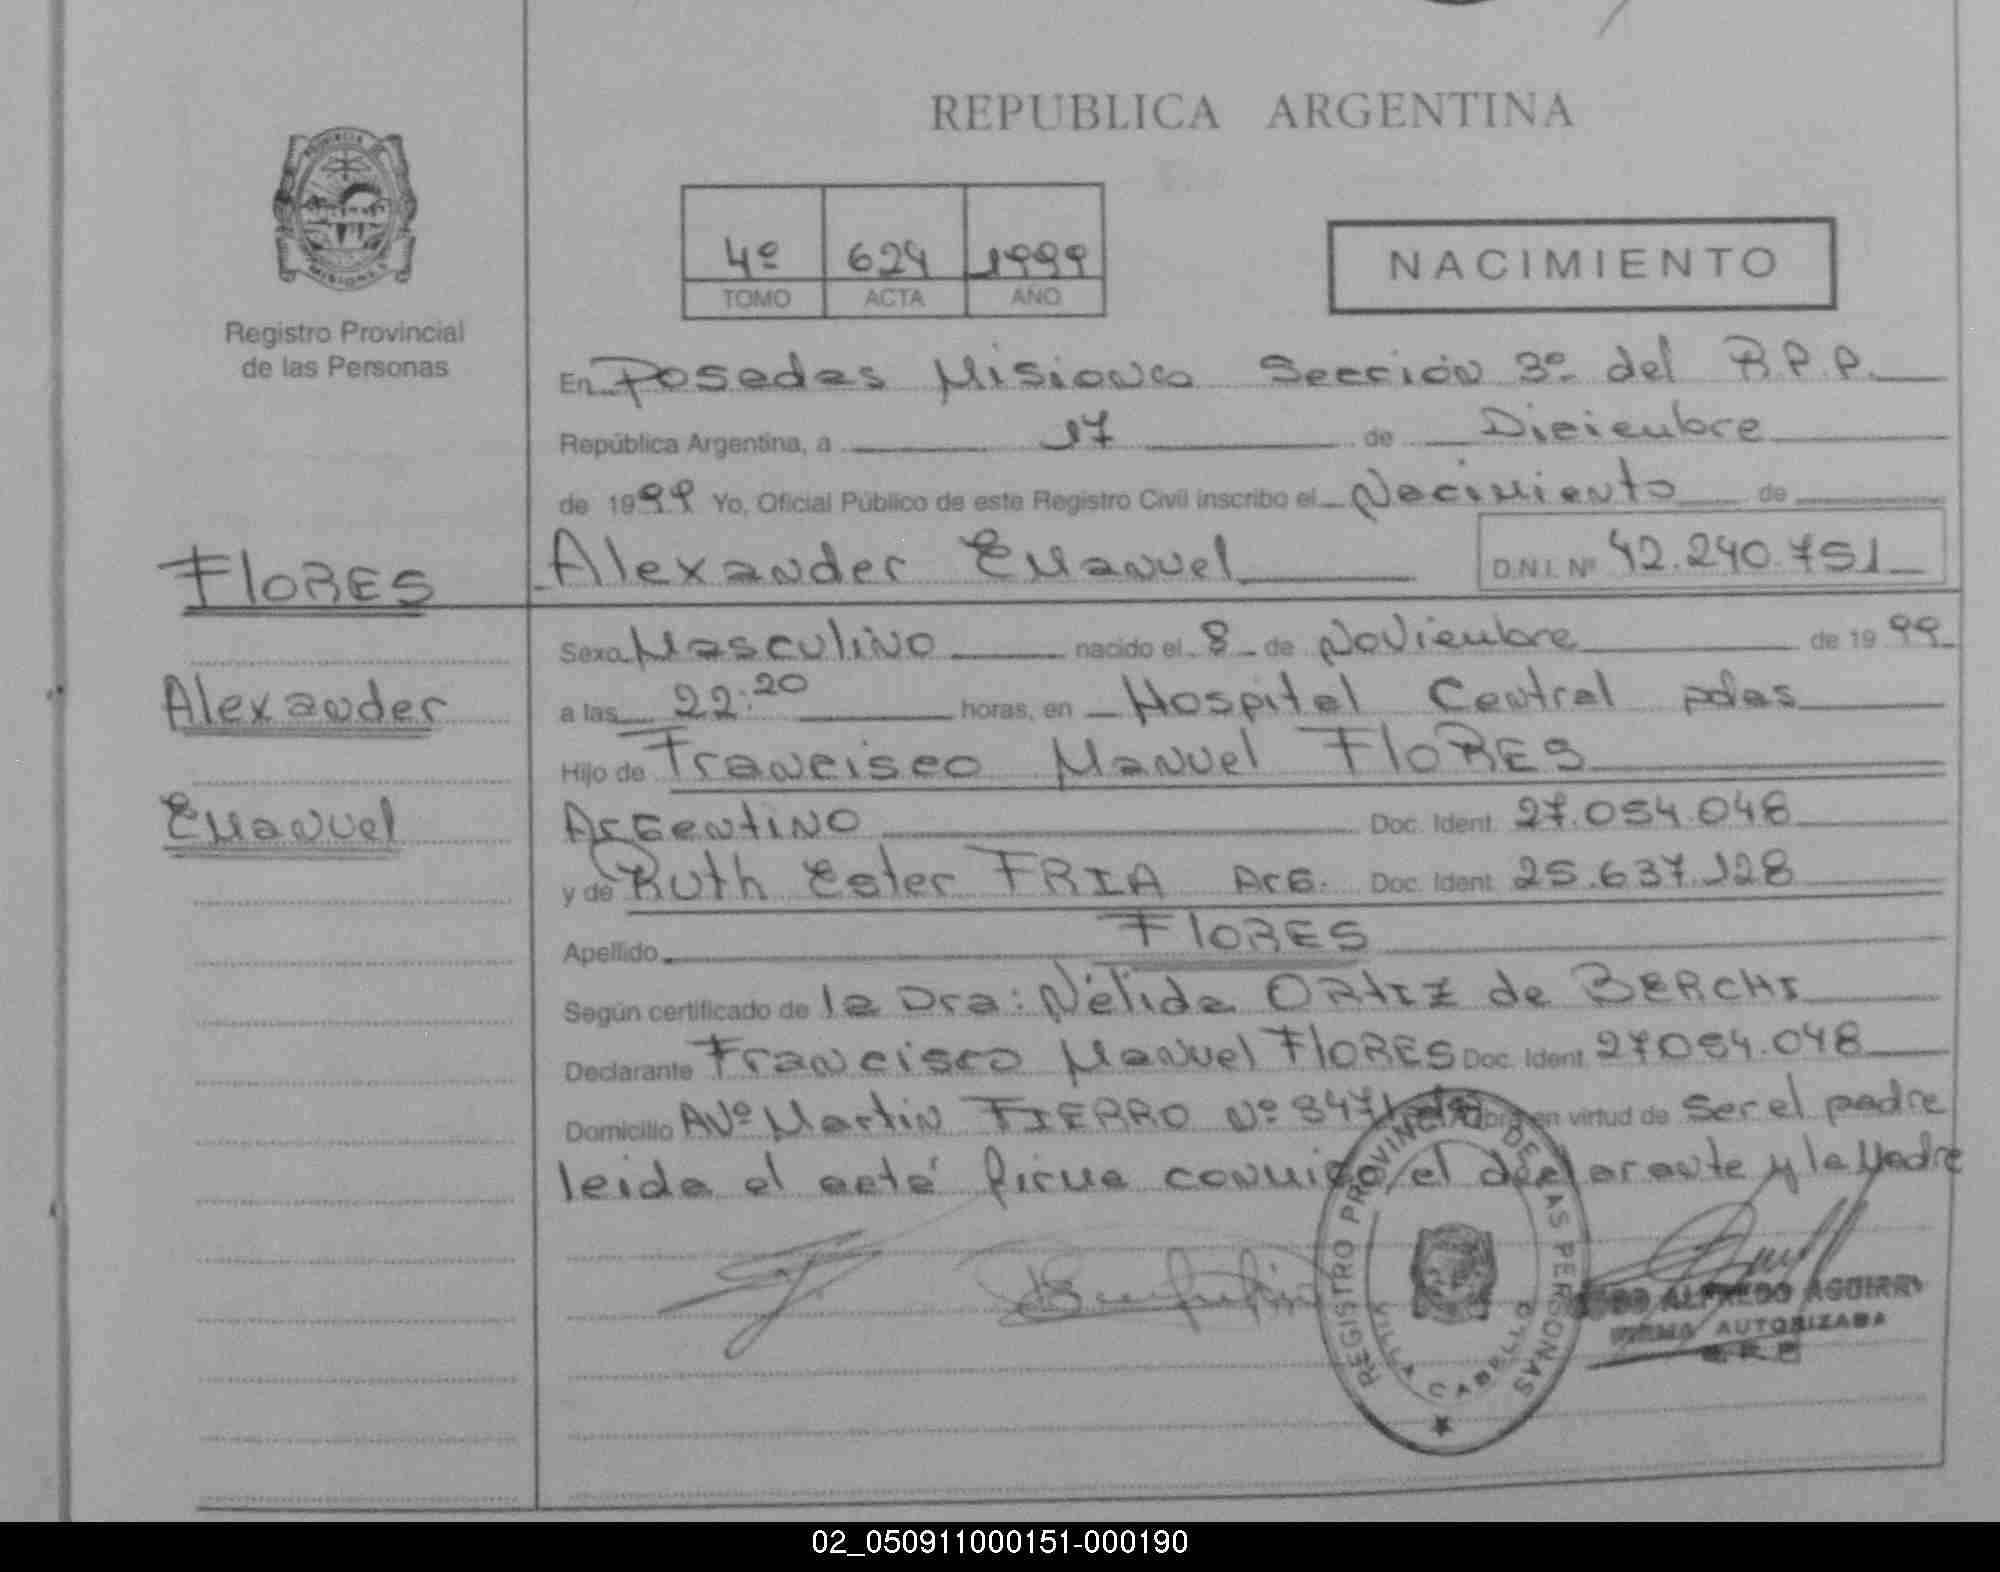 REPUBLICA ARGENTINA
PROVINCIA DE
MISIONES
Registro Provincial
de las Personas
4º 624 1999
TOMO ACTA AÑO
NACIMIENTO
En Posadas Misiones Sección 3º del R.P.P.
República Argentina, a 17 de Diciembre
de 1999 Yo, Oficial Público de este Registro Civil inscribo el Nacimiento de
FloRES
Alexander Emanuel D.N.I. Nº 42.240.751
Sexo Masculino nacido el 8 de Noviembre de 1999
Alexander
a las 22:20 horas, en Hospital Central pdas
Hijo de Francisco Manuel FloRES
Emanuel
Argentino Doc. Ident. 27.054.048
y de Ruth Ester FRIA Arg. Doc. Ident. 25.637.128
Apellido FloRES
Según certificado de la Dra: Nélida ORtIZ de BERCHI
Declarante Francisco Manuel FloRES Doc. Ident. 27054.048
Domicilio AVº Martin FIERRO Nº 3471 obra en virtud de ser el padre
leida el acta firma conmigo el declarante y la Madre
REGISTRO PROVINCIAL DE LAS PERSONAS
VILLA CABELLO
ALFREDO AGUIRRE
FIRMA AUTORIZADA
02_050911000151-000190